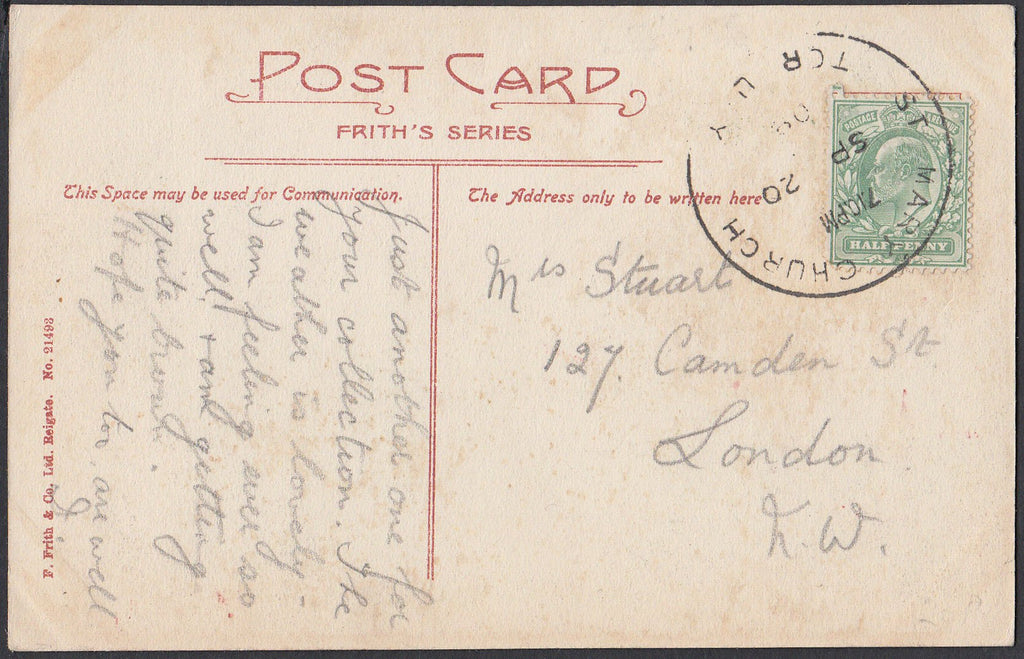 POST CARD
FRITH'S SERIES
This Space may be used for Communication.
The Address only to be written here
Just another one for
your collection. The
weather is lovely -
I am feeling ever so
well, & am getting
quite brown.
Hope you too are well
Mrs Stuart
127. Camden St
London
N.W.
ST MARY CHURCH
TOR U Y
7/10PM
SP 20
09
POSTAGE REVENUE
HALFPENNY
F. Frith & Co. Ltd. Reigate. No. 21493